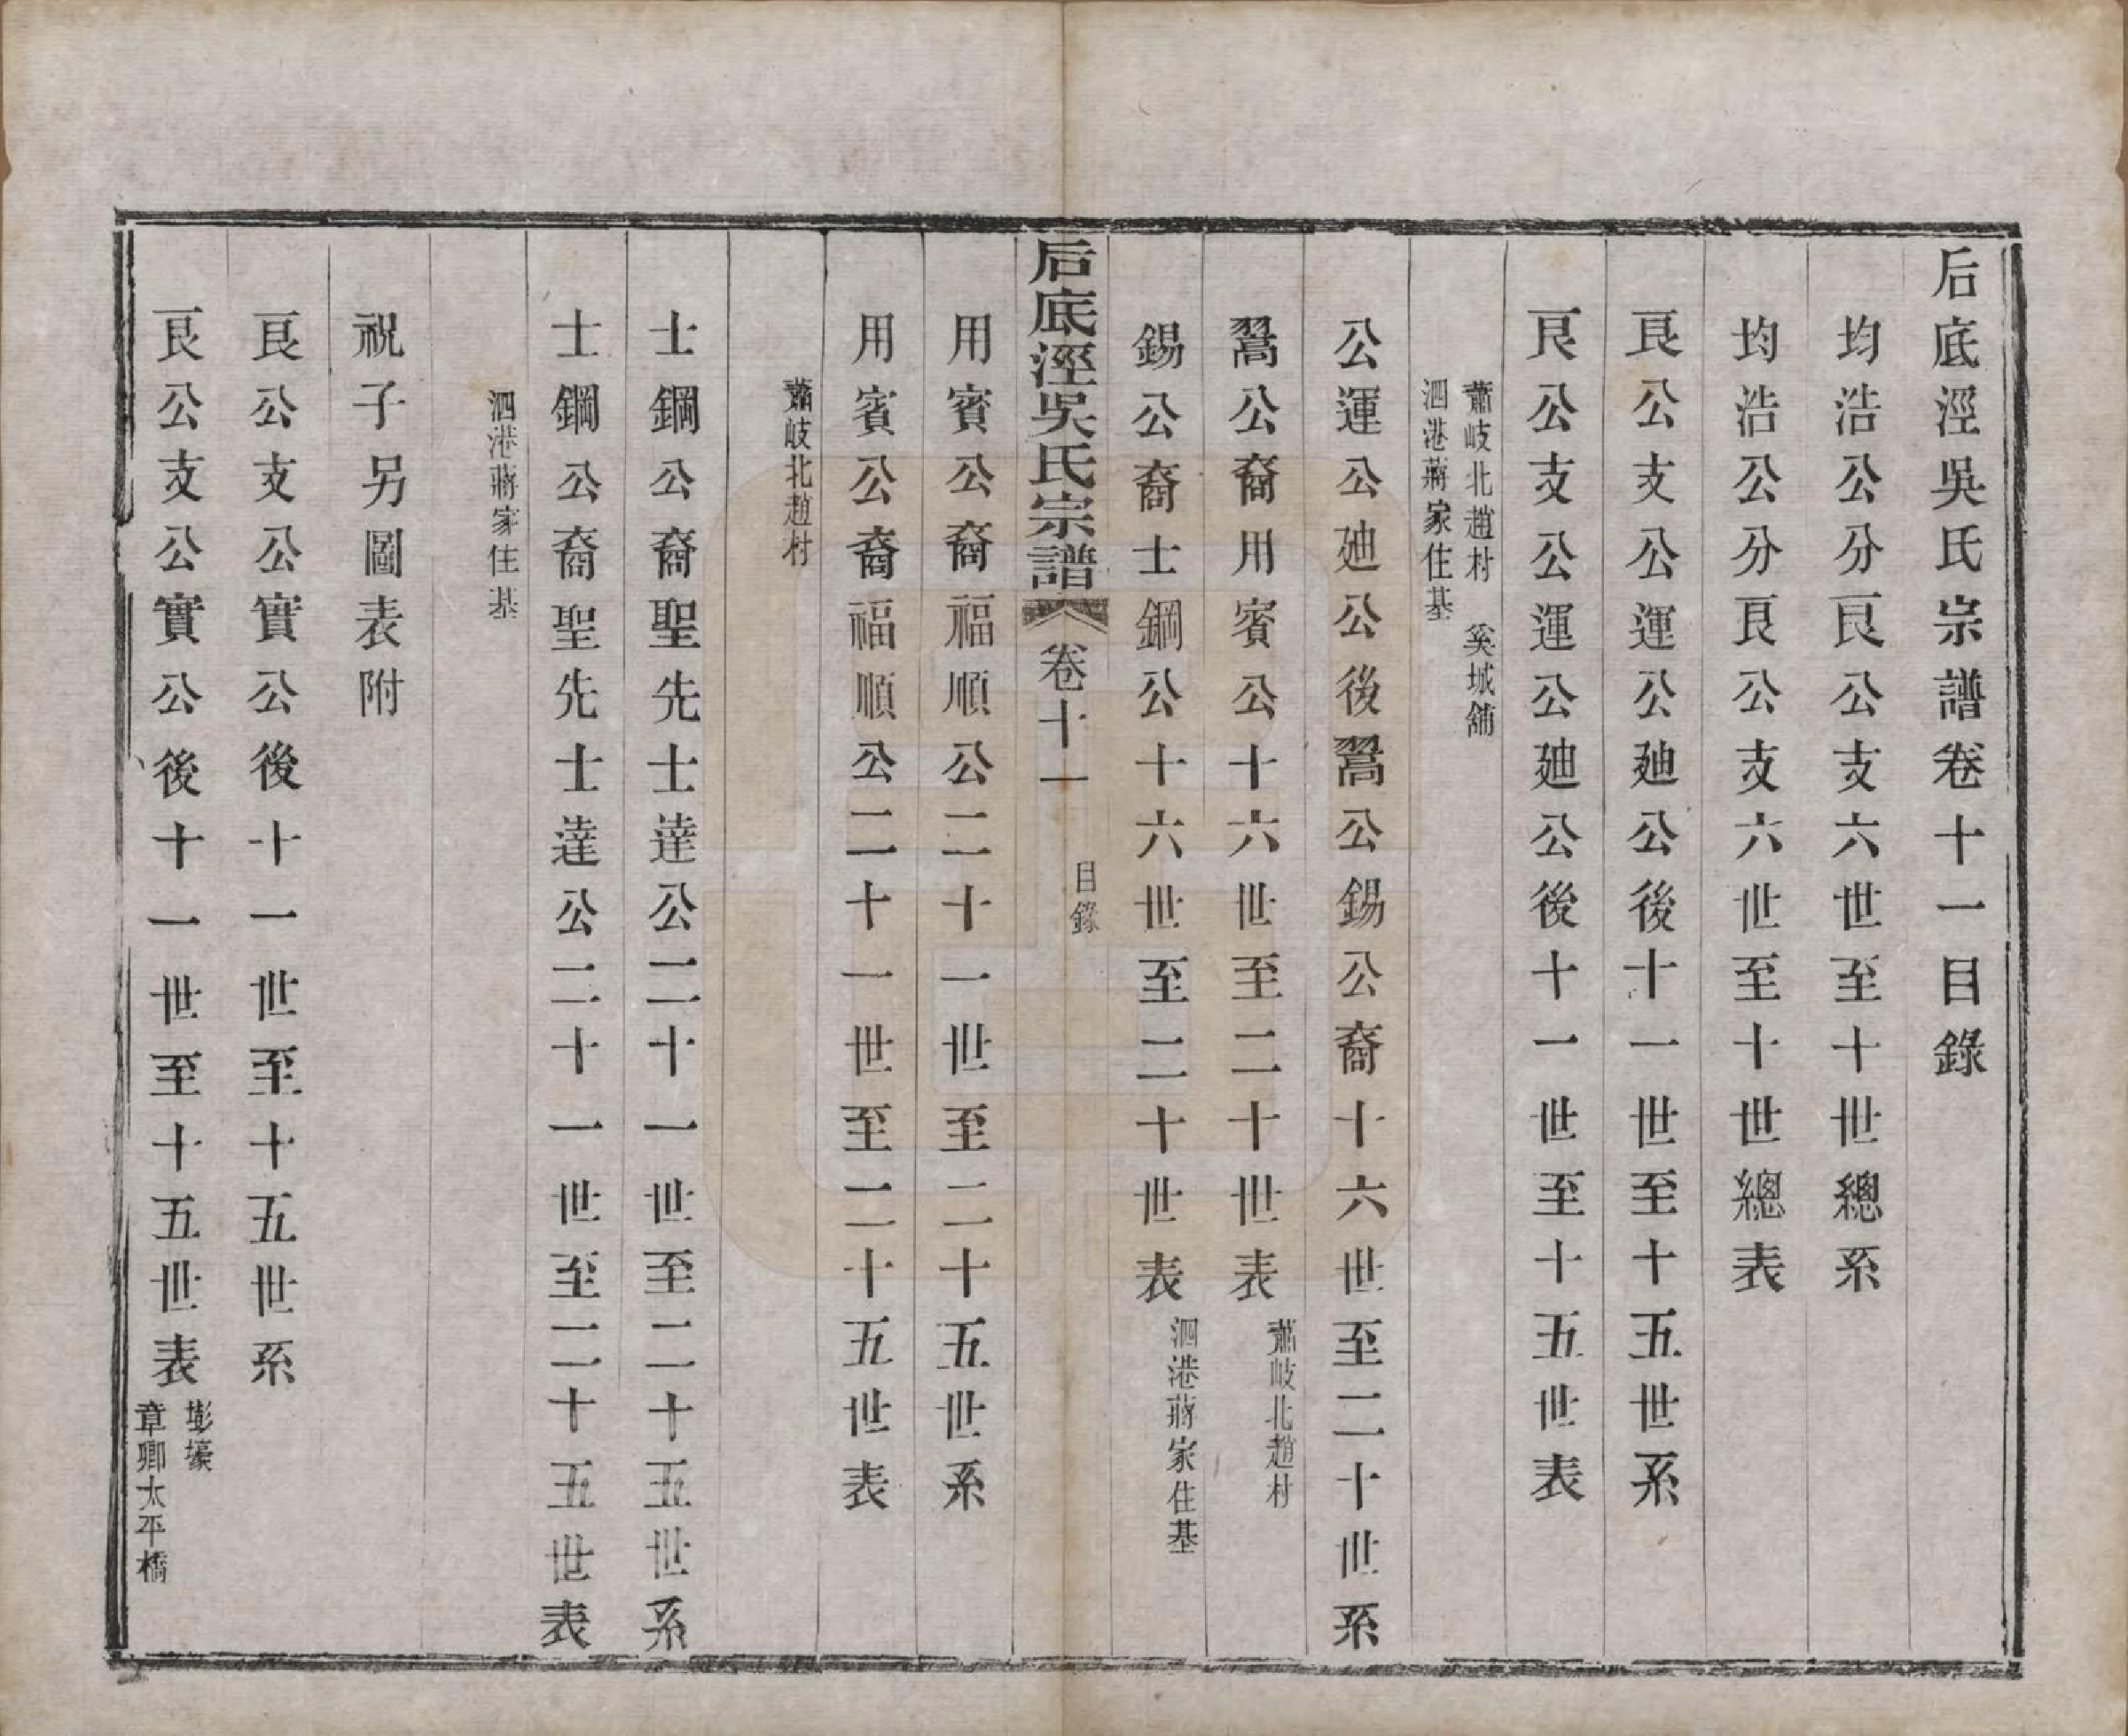 后底涇吳氏宗譜卷十一目錄
均浩公分艮公支六世至十世總系
均浩公分艮公支六世至十世總表
艮公支公運公廸公後十一世至十五世系
艮公支公運公廸公後十一世至十五世表
蕭岐北趙村 奚城舖
泗港蔣家住基
公運公廸公後翯公錫公裔十六世至二十世系
翯公裔用賓公十六世至二十世表 蕭岐北趙村
錫公裔士鋼公十六世至二十世表 泗港蔣家住基
后底涇吳氏宗譜 卷十一 目錄
用賓公裔福順公二十一世至二十五世系
用賓公裔福順公二十一世至二十五世表
蕭岐北趙村
士鋼公裔聖先士達公二十一世至二十五世系
士鋼公裔聖先士達公二十一世至二十五世表
泗港蔣家住基
祝子另圖表附
艮公支公實公後十一世至十五世系
艮公支公實公後十一世至十五世表 塳壕
章卿太平橋